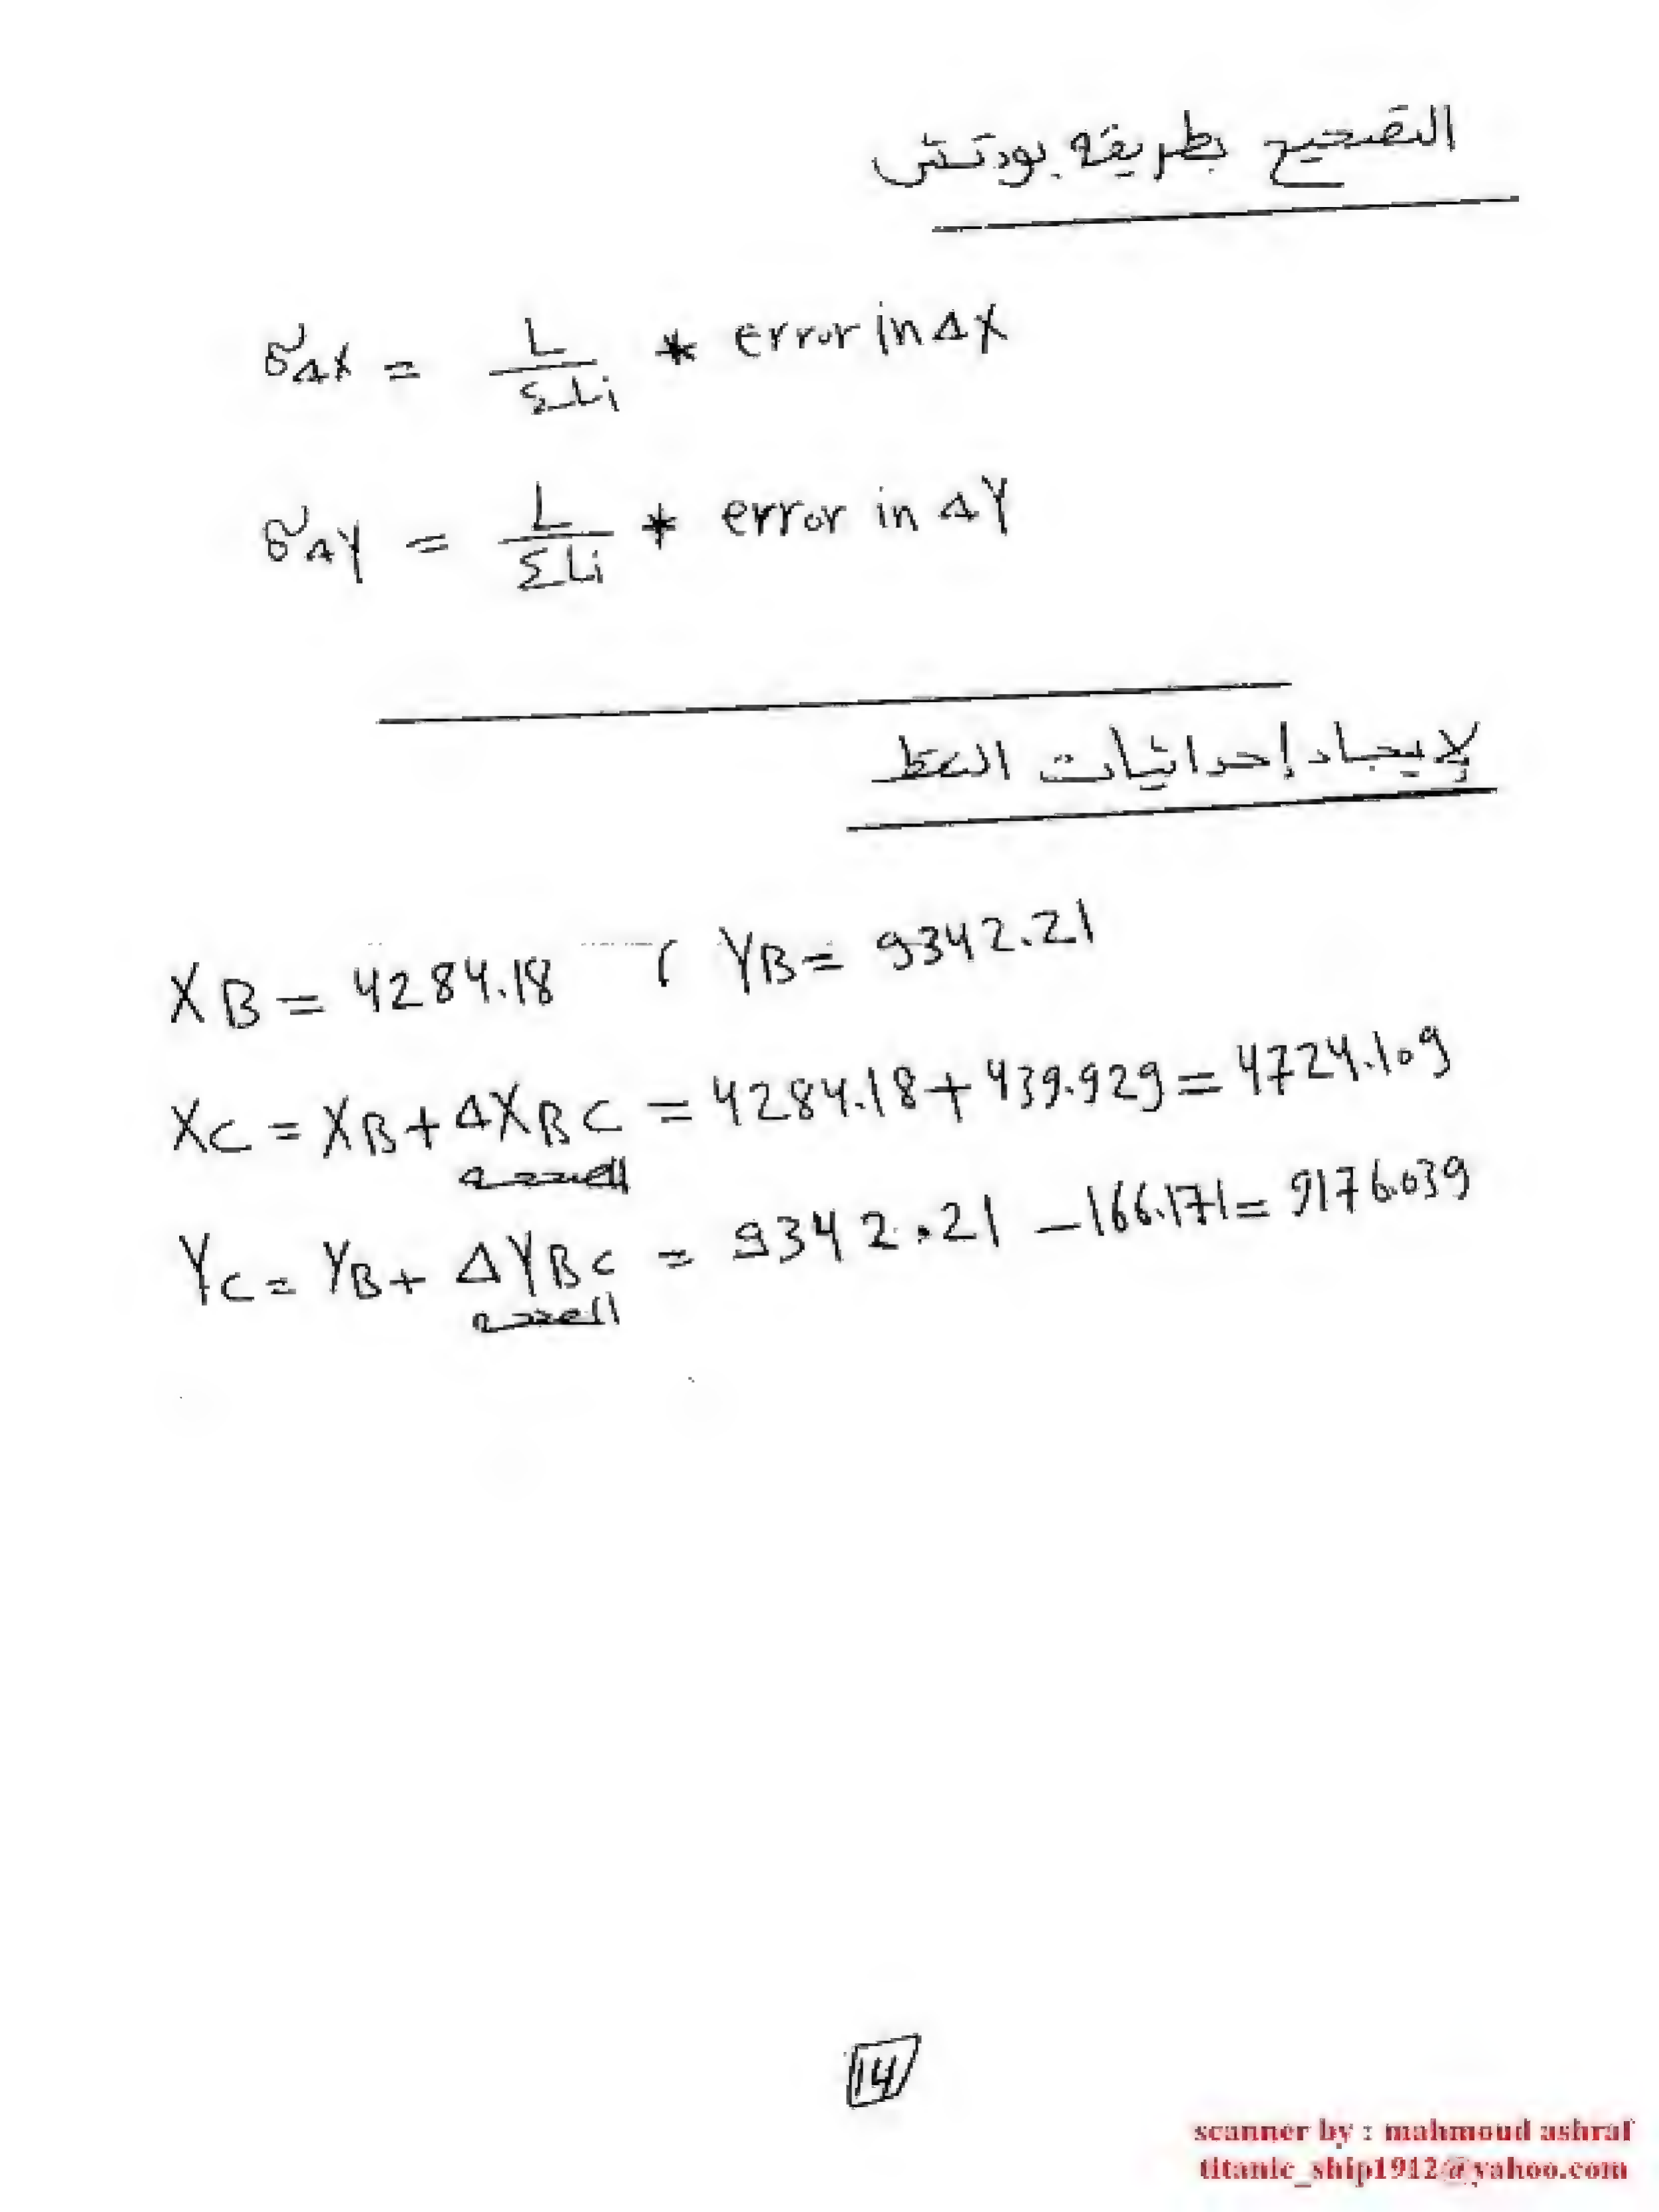 التصحيح بطريقه بودتش
δΔX = L / ΣLi * error in ΔX
δΔY = L / ΣLi * error in ΔY
لإيجاد إحداثيات النقط
XB = 4284.18 , YB = 9342.21
XC = XB + ΔXBC = 4284.18 + 439.929 = 4724.109
المصححه
YC = YB + ΔYBC = 9342.21 - 166.171 = 9176.039
المصححه
14
scanner by : mahmoud ashraf
titanic_ship1912@yahoo.com